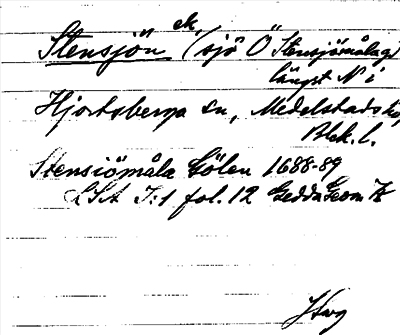 ek.
Stensjön (sjö Ö Stensjömåla gd
längst N i
Hjortsberga sn, Medelstads hd
Blek. l.
Stensiömåla Gölen 1688-89
LSA I:1 fol. 12 Gedda Geom K